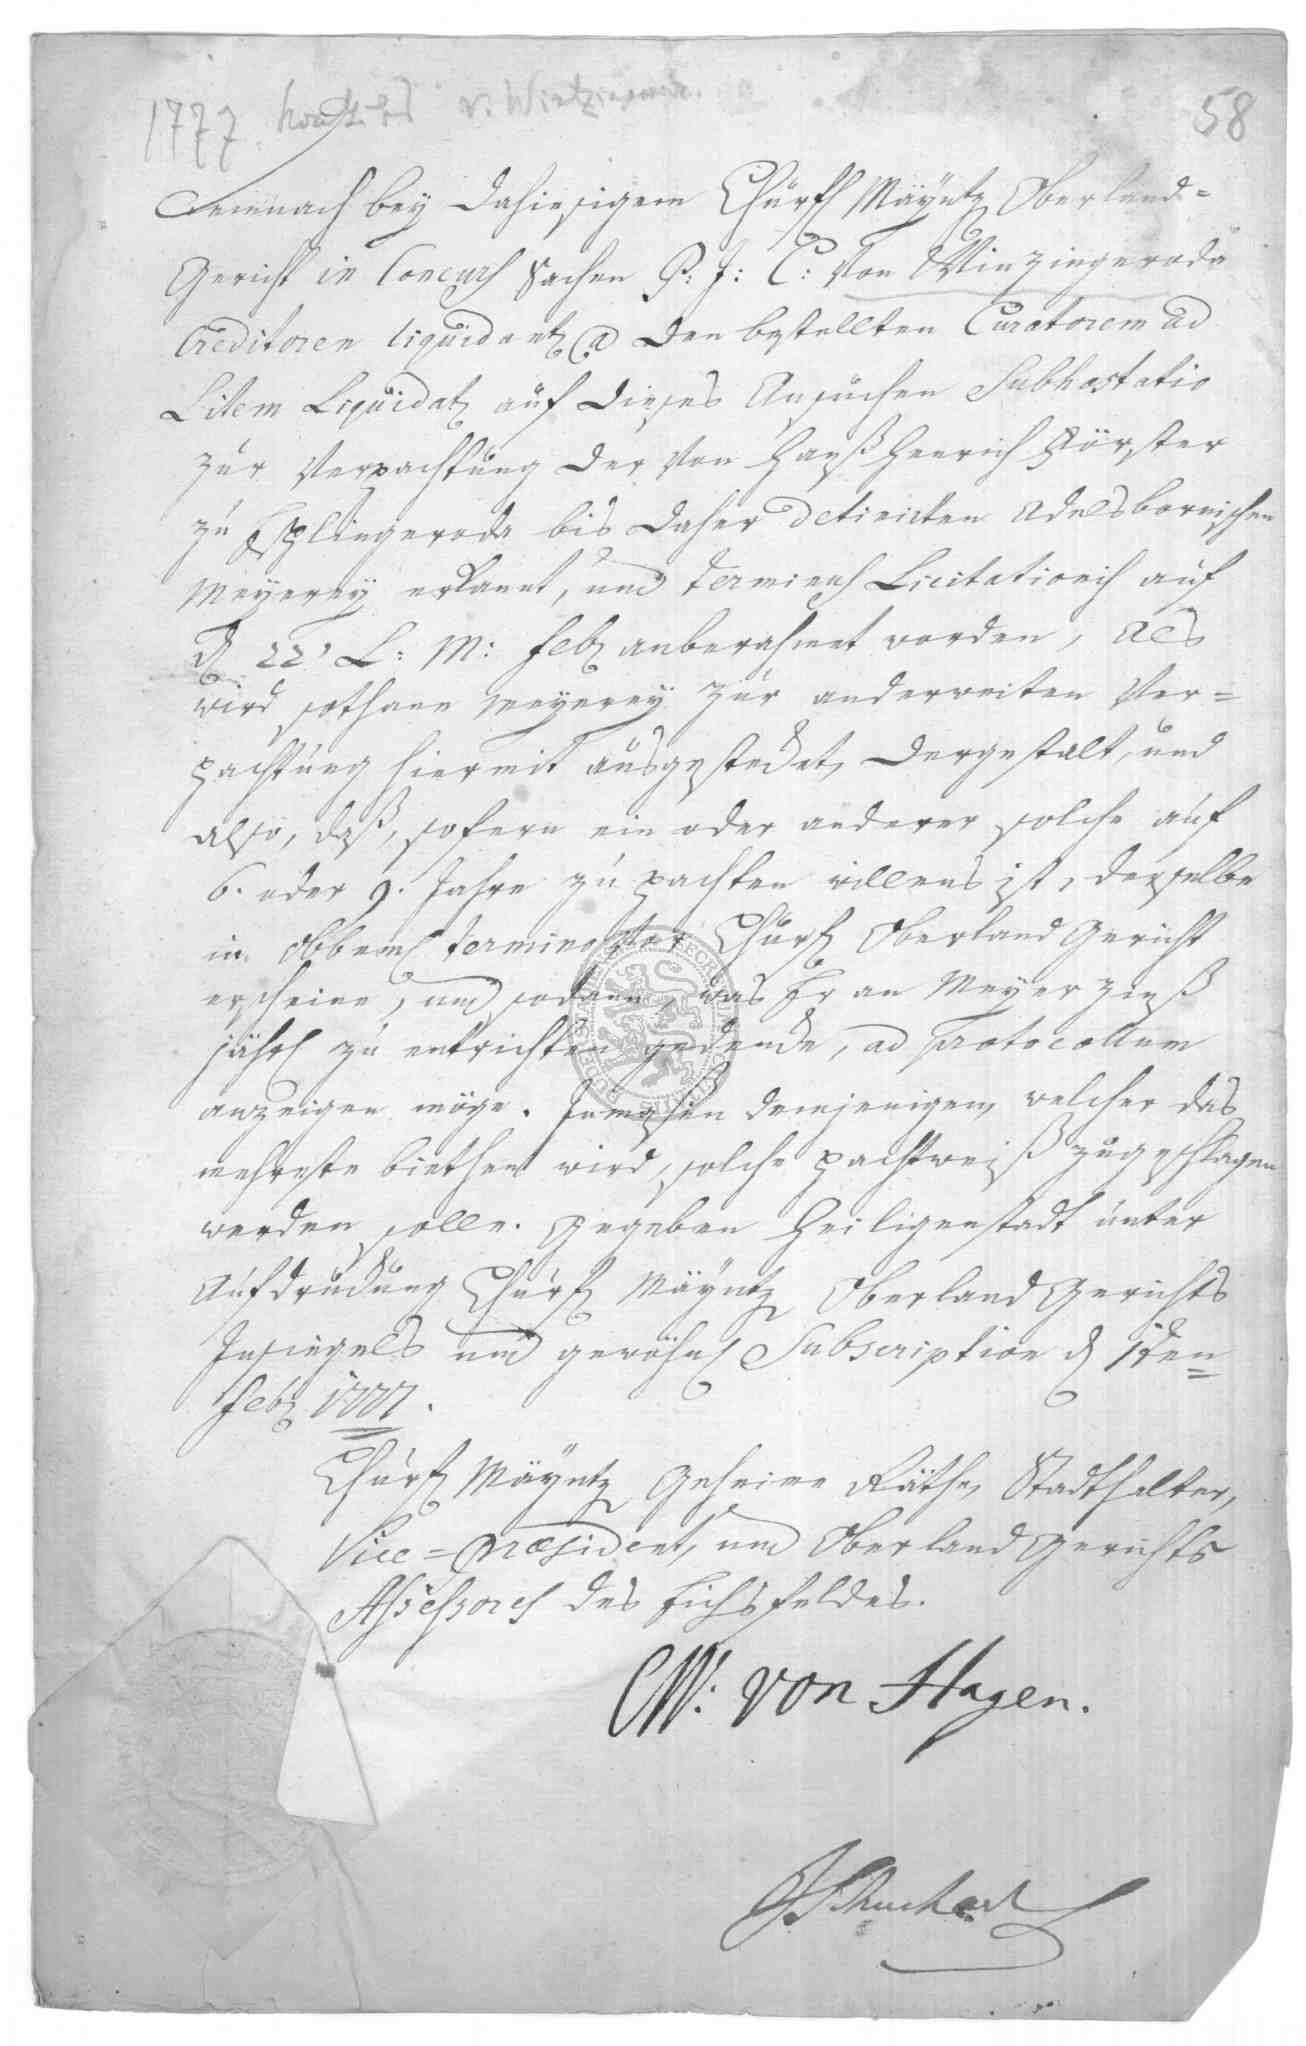 1777. v. Wintzingerode.
58
Demnach bey dahiesigem Churfl Mäyntz Oberland=
Gericht in Concurs Sachen P: J: C: von Winzingeroda
Creditoren liquidant a den bestellten Curatorem ad
Litem Liquidat auf dieses Ansuchen Subhastatio
zur Verpachtung der von Hanß Henrich Förster
zu Esplingeroda bis daher detinirten Adelsbornischen
Meyerey erkannt, und terminus Licitationis auf
d 22t L: M: Feb anberahmet worden, als
wird sothane Meyerey zur anderweiten Ver=
pachtung hiermit ausgestecket, dergestalt, und
also, daß, sofern ein oder anderer solche auf
6. oder 9. Jahre zu pachten willens ist, derselbe
in obbeml termino vor Churfl Oberland Gericht
erscheine, und sodann, was Er an Meyer Zinß
jährl zu entrichten gedencke, ad Protocollum
anzeigen möge. Immaßen demjenigen, welcher das
mehreste biethen wird, solche pachtweiß zugeschlagen
werden solle. Gegeben Heiligenstadt unter
Aufdruckung Churfl Mäyntz Oberland Gerichts
Insiegels und gewöhnl Subscription d 1ten
Feb 1777.
Churfl Mäyntz Geheime Räthe, Stadthalter,
Vice=Præsident, und Oberland Gerichts
Assessores des Eichsfeldes.
CW: von Hagen.